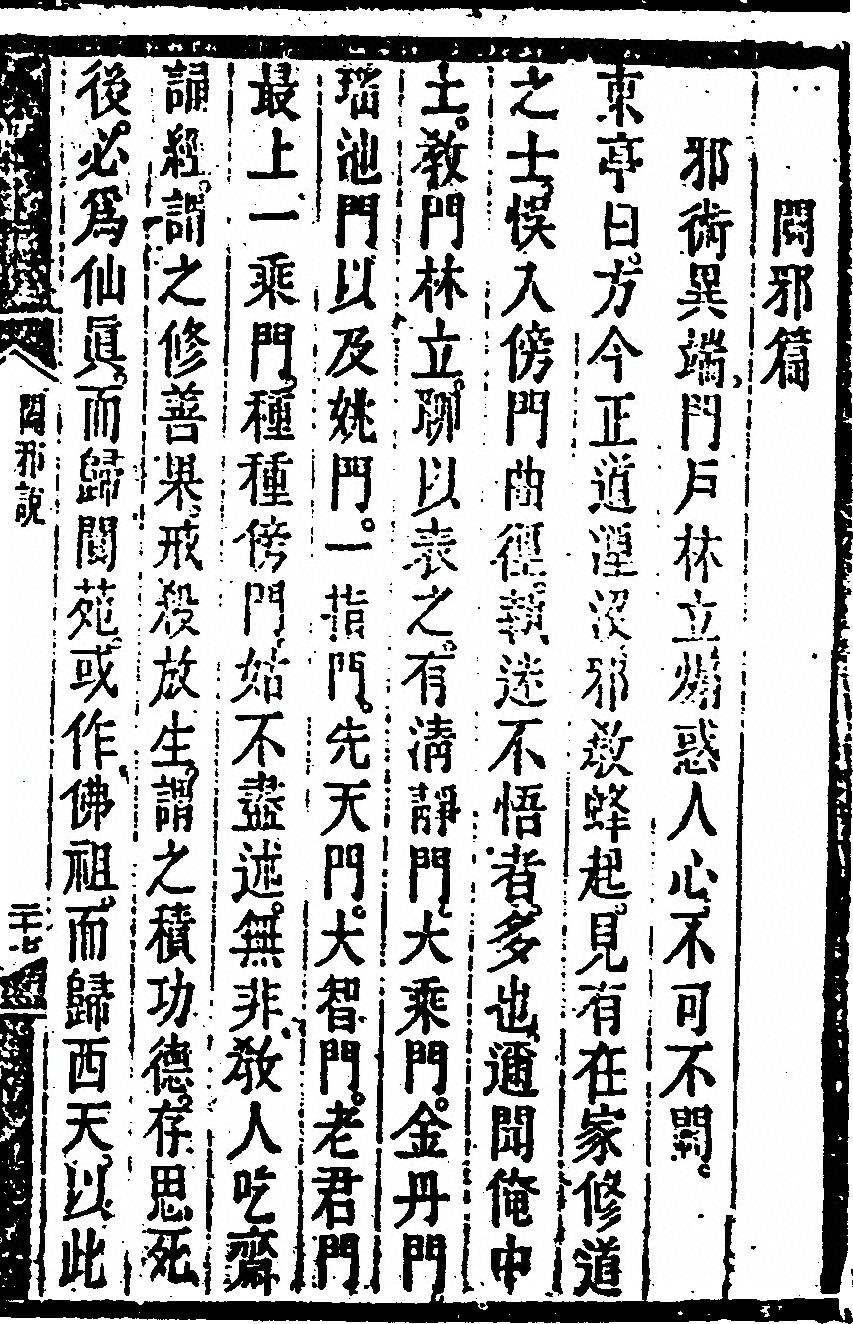 闢邪篇
邪術異端門戶林立煽惑人心不可不闢。
東亭曰。方今正道湮沒邪教蜂起。見有在家修道
之士悞入傍門曲徑。執迷不悟者。多也邇聞俺中
土。教門林立。聊以表之。有清靜門。大乘門。金丹門
瑤池門以及姚門。一指門。先天門。大智門。老君門
最上一乘門。種種傍門姑不盡述。無非教人吃齋
誦經。謂之修善果。戒殺放生。謂之積功德。存思死
後。必爲仙眞。而歸閬苑。或作佛祖。而歸西天。以此
闢邪說
二十七